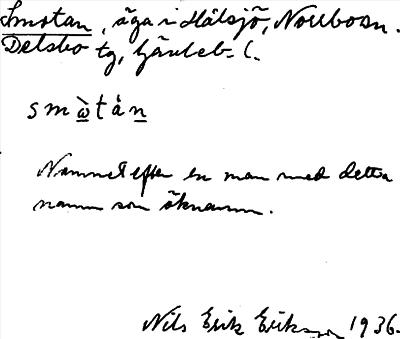 Smotan, äga i Hålsjö, Norrboån.
Delsbo tg, Gävleb. l.
smòtån
Namnet efter en man med detta
namn som öknamn.
Nils Erik Eriksson 1936.